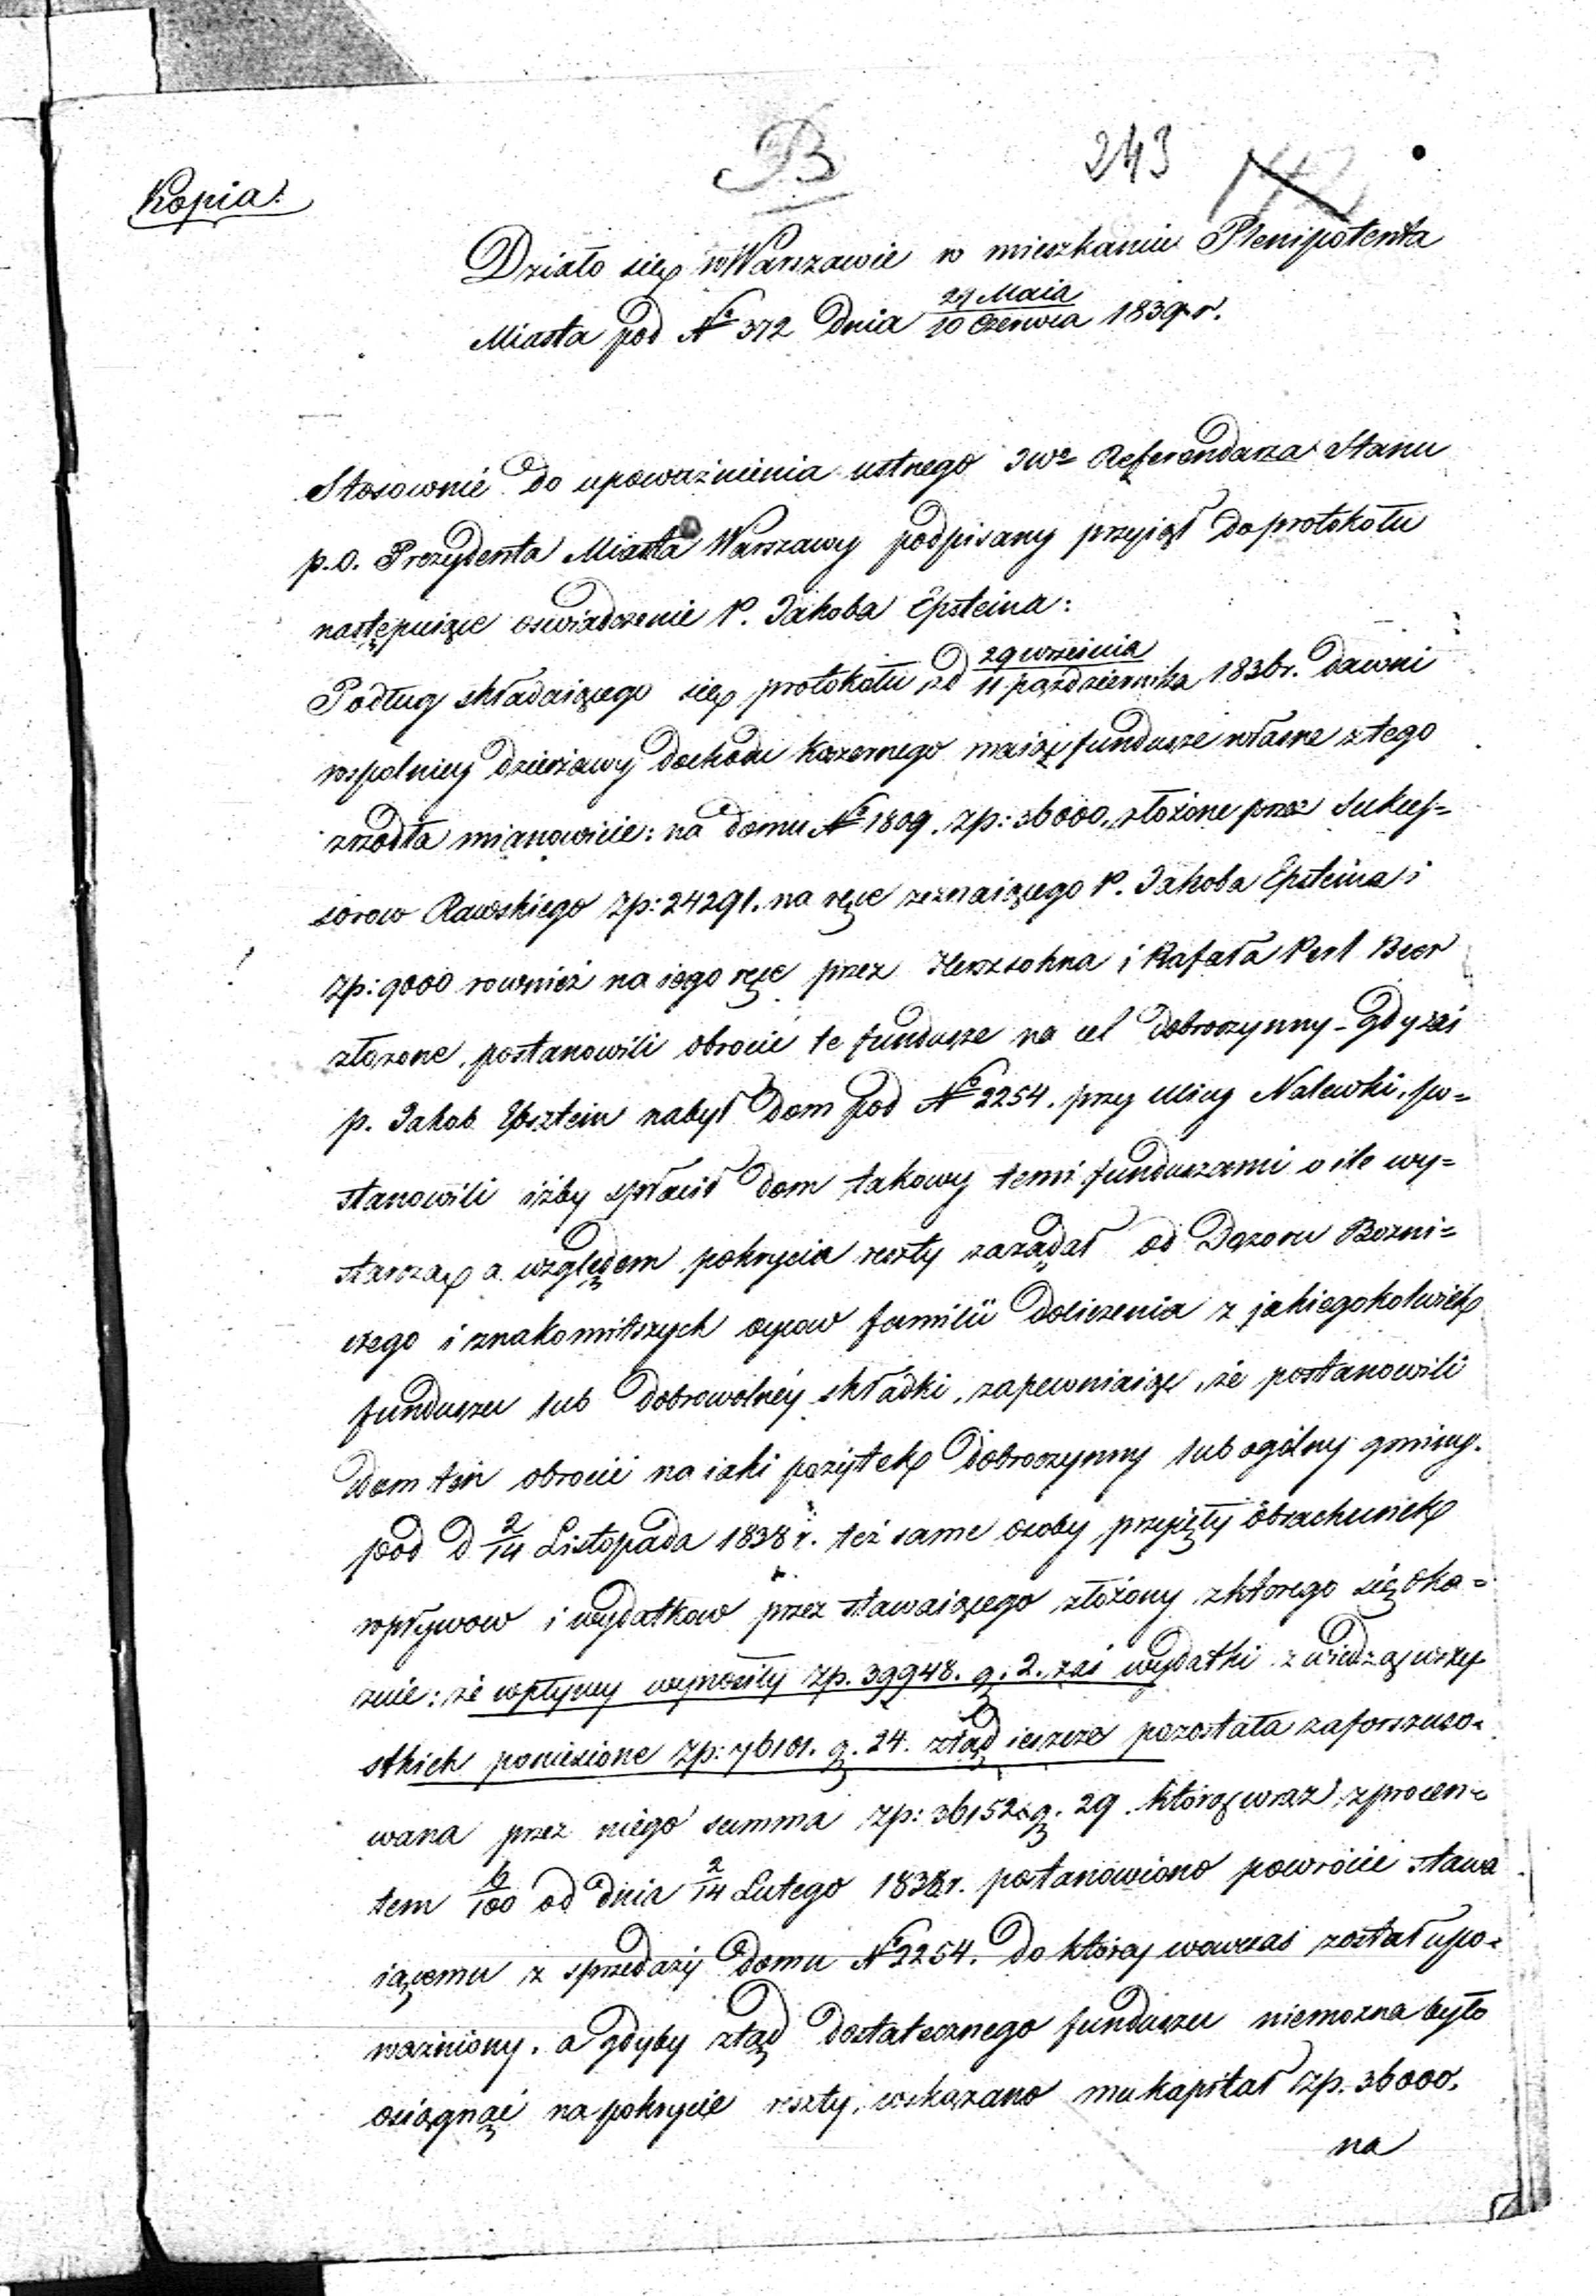 B
243
Kopia.
Działo się w Warszawie w mieszkaniu Plenipotenta
Miasta pod № 372 Dnia 29 Maia / 10 Czerwca 1839 r.
Stosownie do upoważnienia ustnego JWo Referendarza Stanu
p.o. Prezydenta Miasta Warszawy podpisany przyiął do protokołu
następuiące oswiadczenie P. Jakoba Epsteina:
Podług składaiącego się protokołu z d 29 września / 11 października 1836 r. dawni
wspolnicy dzierżawy dochodu koszernego maiąc fundusze własne z tego
zrzodła mianowicie: na domu № 1809. zp: 36000, złożone przez Sukces=
sorow Rawskiego zp: 24291. na ręce zeznaiącego P. Jakoba Epsteina i
zp: 9000 rownież na iego ręce przez Herszsohna i Rafała Perl Beer
złożone, postanowili obrocić te fundusze na cel dobroczynny - gdy zaś
p. Jakob Epsztein nabył dom pod № 2254. przy Ulicy Nalewki, po=
stanowili iżby spłacił dom takowy temi funduszami o ile wy=
starczą a względem pokrycia reszty zażądał od Dozoru Bożni=
czego i znakomitszych oycow familii doliczenia z jakiegokolwiek
funduszu lub dobrowolney składki, zapewniaiąc, że postanowili
dom ten obrocić na iaki pożytek dobroczynny lub ogólny gminy.
pod d 2/14 Listopada 1838 r. też same osoby przyięły obrachunek
wpływow i wydatkow przez stawaiącego złożony z ktorego się oka=
zuie: że wpływy wynosiły zp. 39948. g. 2. zaś wydatki z wiedzą wszy=
stkich poniesione zp: 76101. g. 24. ztąd ieszcze pozostała zaforszuso=
wana przez niego summa zp: 36152 g. 29. którą wraz z procen=
tem 6/100 od dnia 2/14 Lutego 1838 r. postanowiono powrócić stawa
iącemu z sprzedaży domu № 2254. do któréy wowczas został upo=
ważniony. a gdyby ztąd dostatecznego funduszu niemożna było
osiągnąć na pokrycie reszty, wskazano mu kapitał zp. 36000.
na